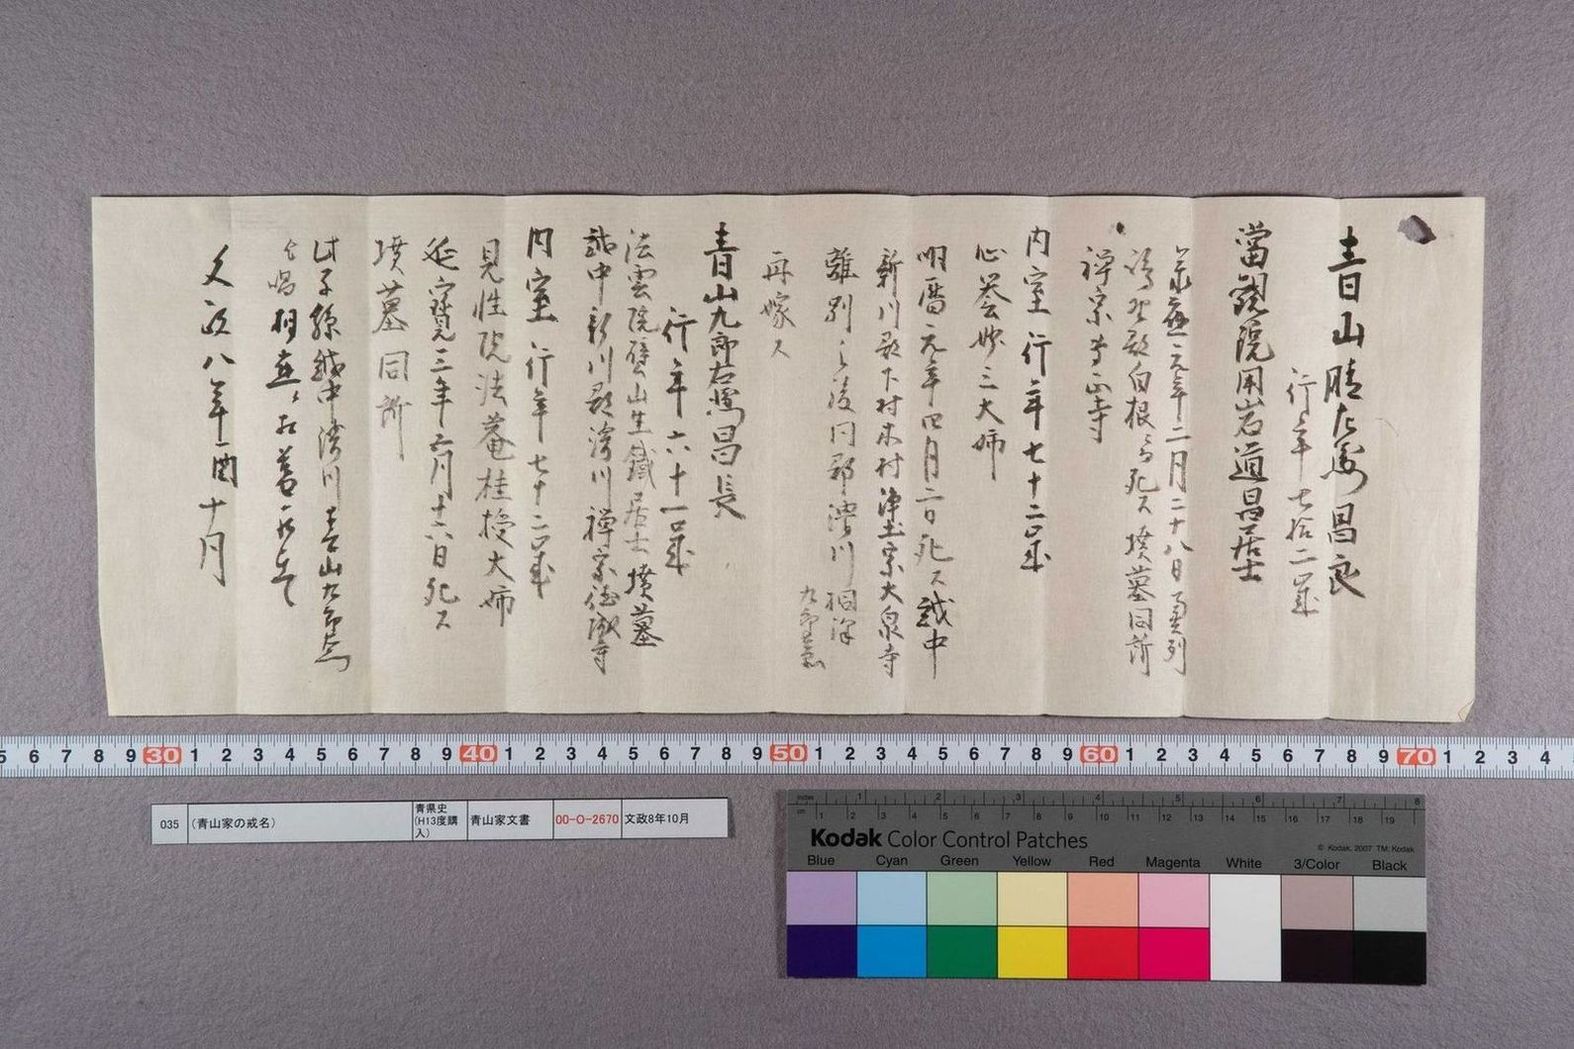 青山
昌良
行年七拾二歳
當觀院用岩道昌居士
元年二月二十八日
白根ニ而死ス墳墓同所
禅宗
内室行年七十二歳
心誉妙三大姉
明暦元年四月二日死ス越中
新川郡下村木村浄土宗大泉寺
離別之後同郡滑川
九郎
再嫁ス
青山九郎右衛門昌長
行年六十一歳
法雲院
山生鐵居士墳墓
越中新川郡滑川禅宗徳城寺
内室行年七十二歳
見性院法菴桂授大姉
延寶三年六月十六日死ス
墳墓同所
此子孫越中滑川青山九郎
文政八年酉十月
5 6 7 8 9 30 1 2 3 4 5 6 7 8 9 40 1 2 3 4 5 6 7 8 9 50 1 2 3 4 5 6 7 8 9 60 1 2 3 4 5 6 7 8 9 70 1 2 3 4
035 (青山家の戒名) 青県史(H13度購入) 青山家文書 00-O-2670 文政8年10月
inches 1 2 3 4 5 6 7 8
cm 1 2 3 4 5 6 7 8 9 10 11 12 13 14 15 16 17 18 19
Kodak Color Control Patches
© Kodak, 2007 TM: Kodak
Blue Cyan Green Yellow Red Magenta White 3/Color Black